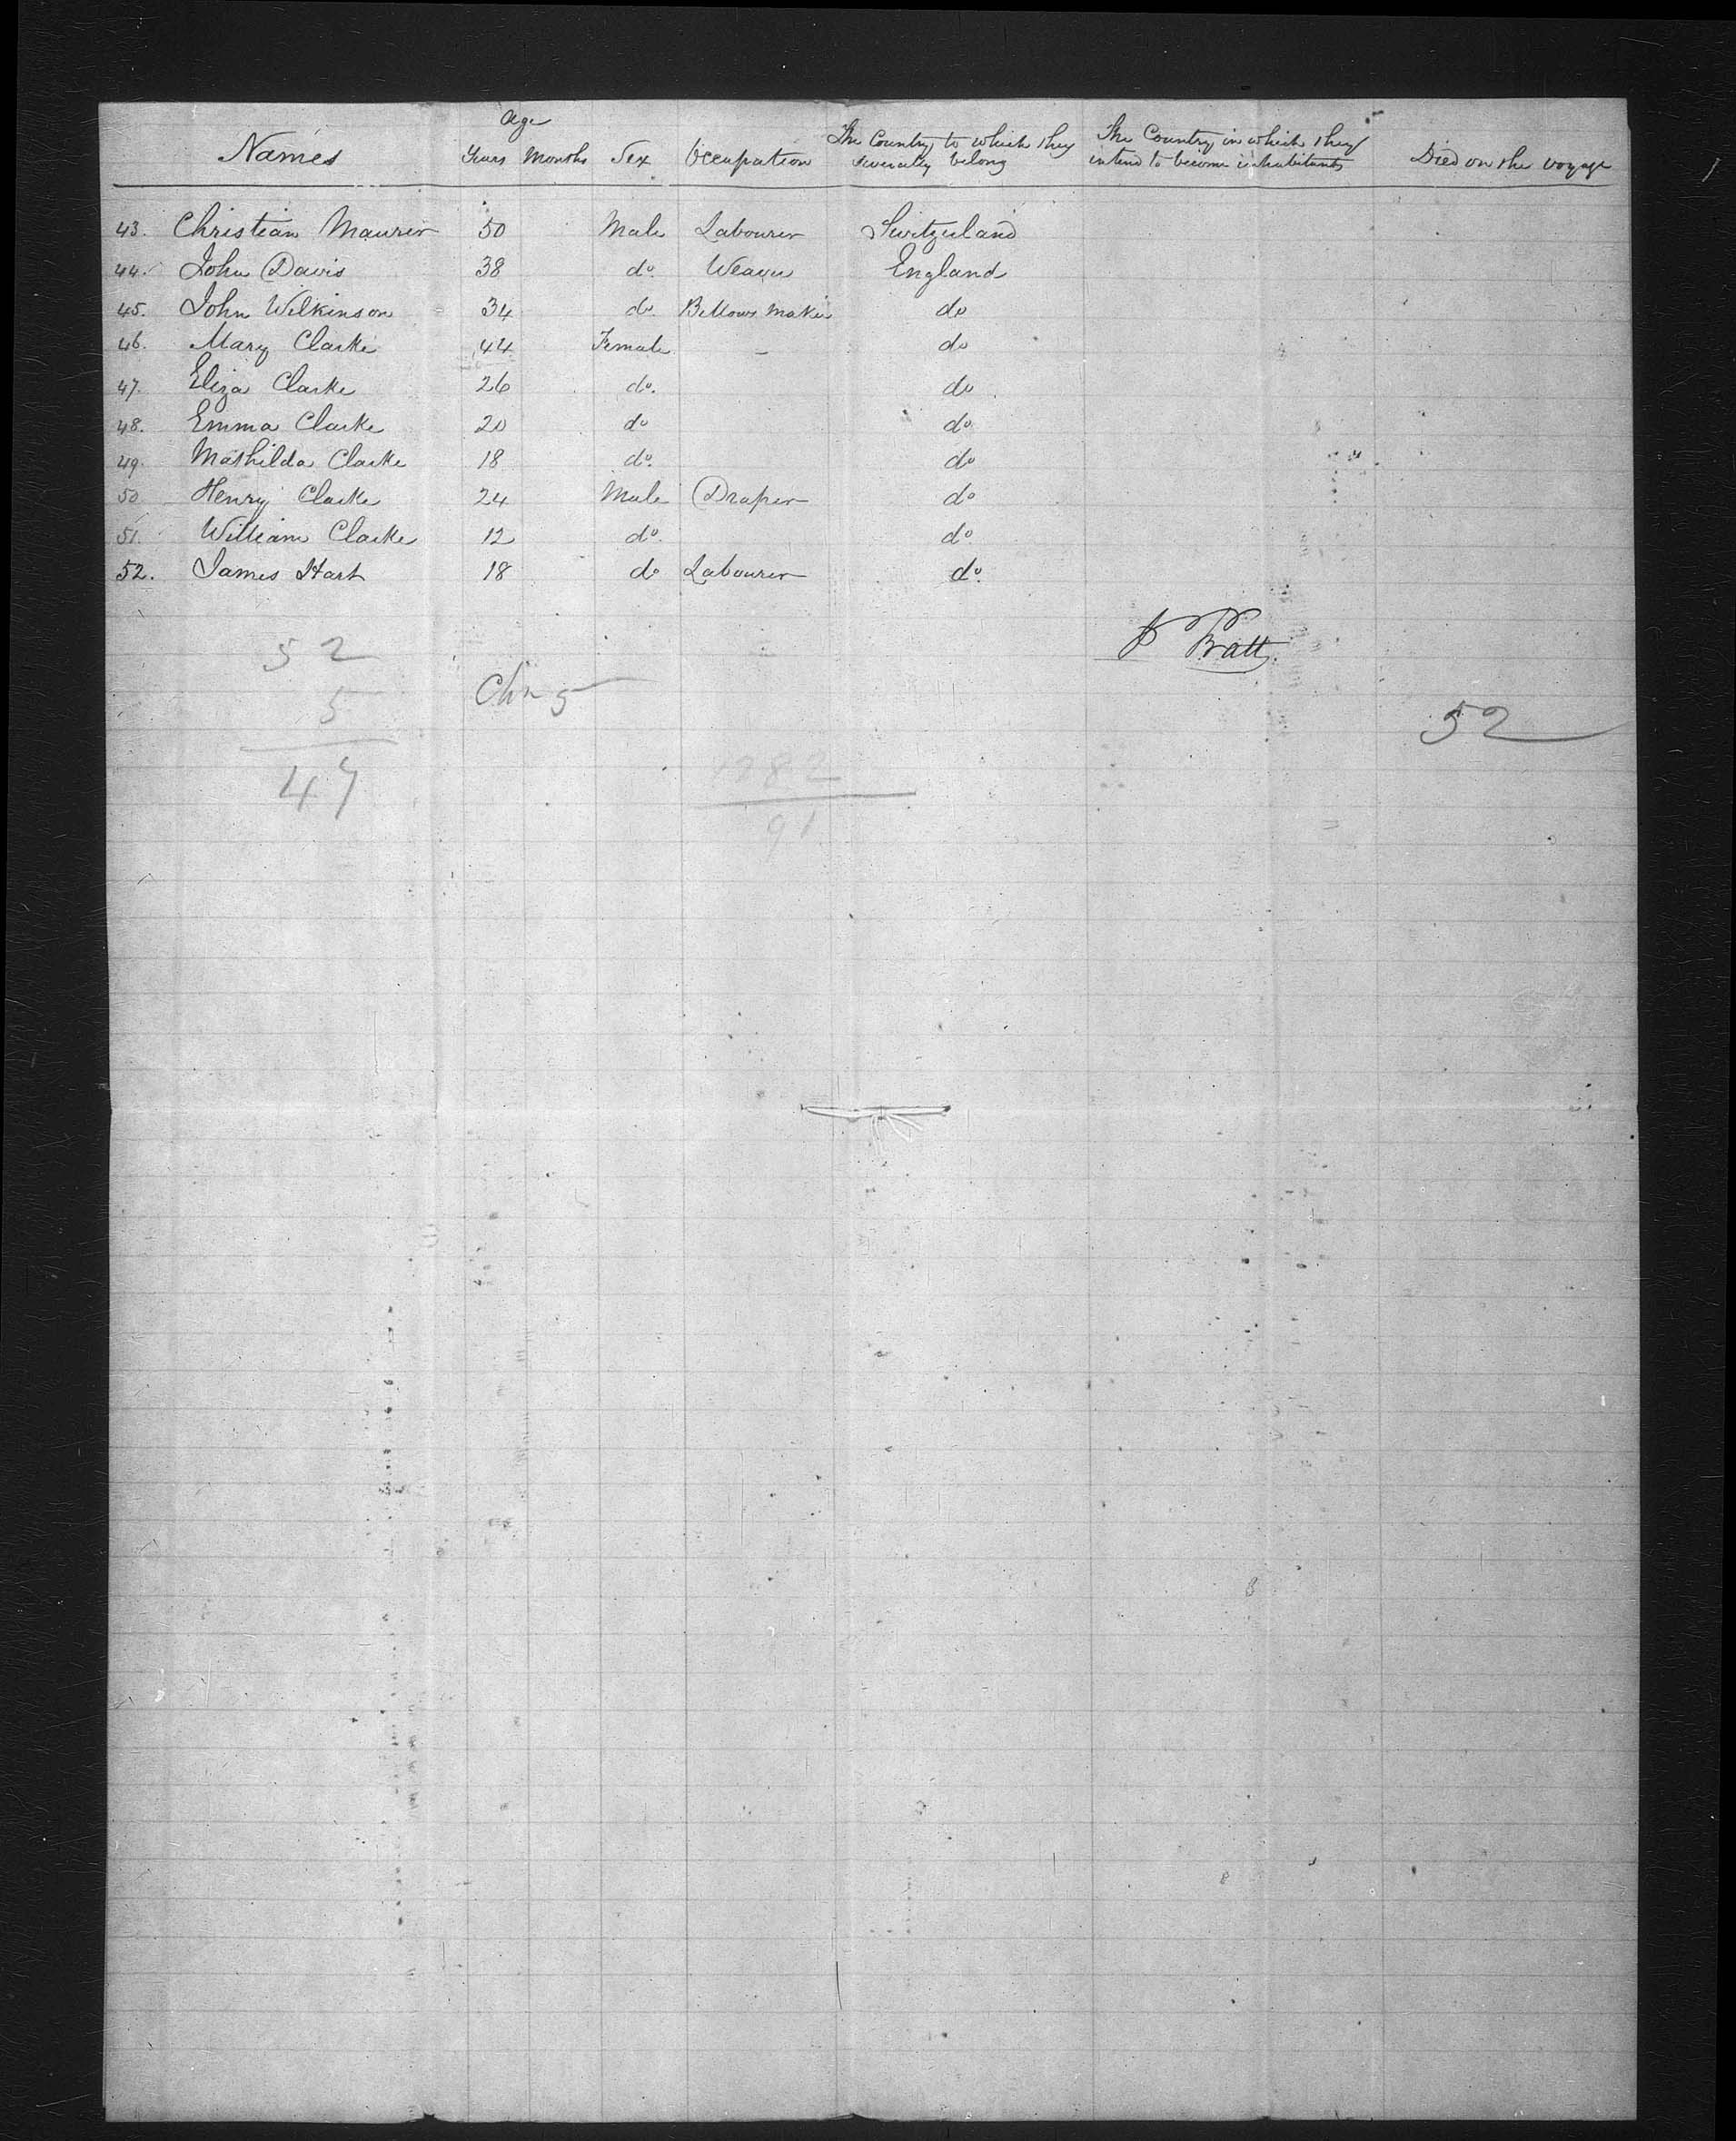 Age
Names Years Months Sex Occupation The Country to which they severally belong The Country in which they intend to become inhabitants Died on the voyage
43. Christian Maurer 50 Male Labourer Switzerland
44. John Davis 38 do. Weaver England
45. John Wilkinson 34 do. Bellows Maker do
46. Mary Clarke 44 Female - do
47. Eliza Clarke 26 do. do
48. Emma Clarke 20 do do.
49. Mathilda Clarke 18 do. do
50 Henry Clarke 24 Male Draper do
51. William Clarke 12 do. do.
52. James Hart 18 do Labourer do.
Pratt
52
5
47
Chn 5
52
91